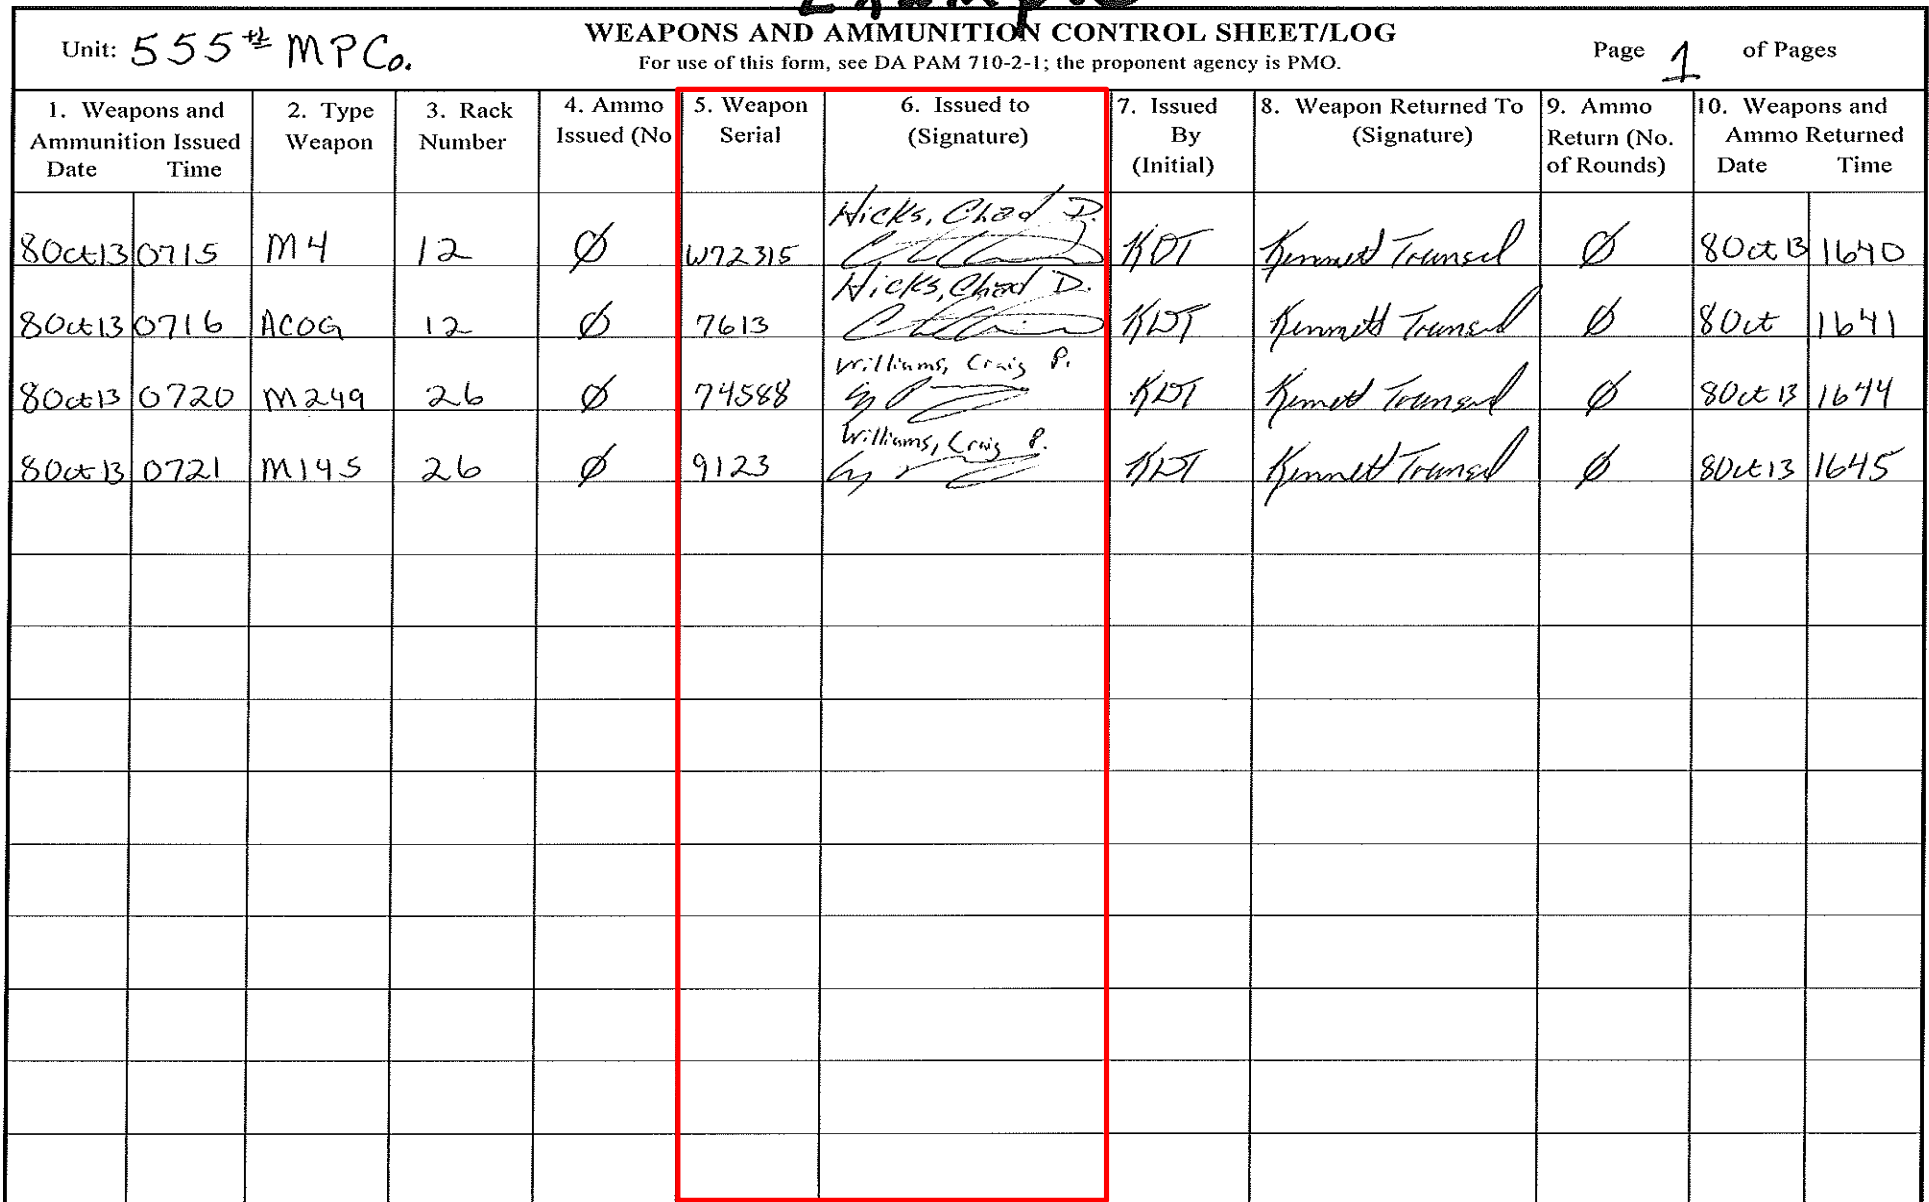 Example
Unit: 555th MP Co.
WEAPONS AND AMMUNITION CONTROL SHEET/LOG
For use of this form, see DA PAM 710-2-1; the proponent agency is PMO.
Page 1 of Pages
1. Weapons and Ammunition Issued Date Time
2. Type Weapon
3. Rack Number
4. Ammo Issued (No
5. Weapon Serial
6. Issued to (Signature)
7. Issued By (Initial)
8. Weapon Returned To (Signature)
9. Ammo Return (No. of Rounds)
10. Weapons and Ammo Returned Date Time
8Oct13 0715 M4 12 Ø W72315 Hicks, Chad D. KDT Ø 8Oct13 1640
8Oct13 0716 ACOG 12 Ø 7613 Hicks, Chad D. KDT Ø 8Oct 1641
8Oct13 0720 M249 26 Ø 74588 Williams, Craig P. KDT Ø 8Oct13 1644
8Oct13 0721 M145 26 Ø 9123 Williams, Craig P. KDT Ø 8Oct13 1645